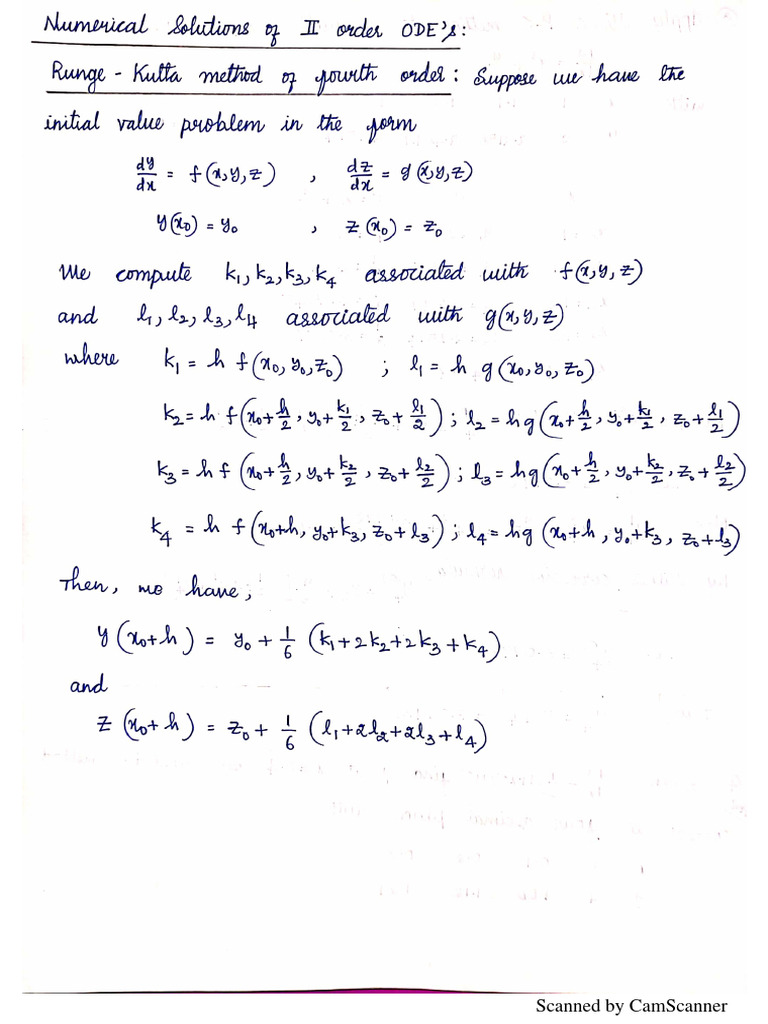 Numerical Solutions of II order ODE's:
Runge - Kutta method of fourth order: Suppose we have the
initial value problem in the form
dy/dx = f(x,y,z) , dz/dx = g(x,y,z)
y(x₀) = y₀ , z(x₀) = z₀
We compute k₁, k₂, k₃, k₄ associated with f(x,y,z)
and l₁, l₂, l₃, l₄ associated with g(x,y,z)
where k₁ = h f(x₀, y₀, z₀) ; l₁ = h g(x₀, y₀, z₀)
k₂ = h f(x₀+h/2, y₀+k₁/2, z₀+l₁/2) ; l₂ = hg(x₀+h/2, y₀+k₁/2, z₀+l₁/2)
k₃ = h f(x₀+h/2, y₀+k₂/2, z₀+l₂/2) ; l₃ = hg(x₀+h/2, y₀+k₂/2, z₀+l₂/2)
k₄ = h f(x₀+h, y₀+k₃, z₀+l₃) ; l₄ = hg(x₀+h, y₀+k₃, z₀+l₃)
Then, we have,
y(x₀+h) = y₀ + 1/6 (k₁+2k₂+2k₃+k₄)
and
z(x₀+h) = z₀ + 1/6 (l₁+2l₂+2l₃+l₄)
Scanned by CamScanner